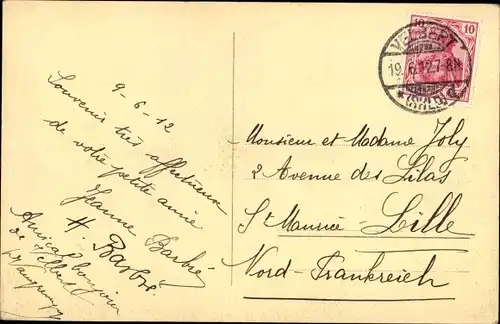 9-6-12
Souvenir très affectueux
de votre petite amie
Jeanne Barbré
H Barbré
Amical bonjour
de Velbert
Monsieur et Madame Joly
2 Avenue des Lilas
St Maurice-Lille
Nord-Frankreich
10 10
VELBERT
19.6.12.7-8N.
* (RHLD) d